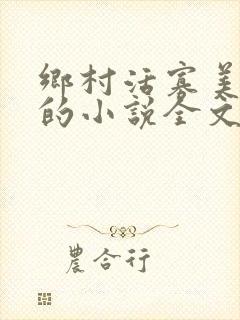 鄉村活寡美
的小説全文
農合行